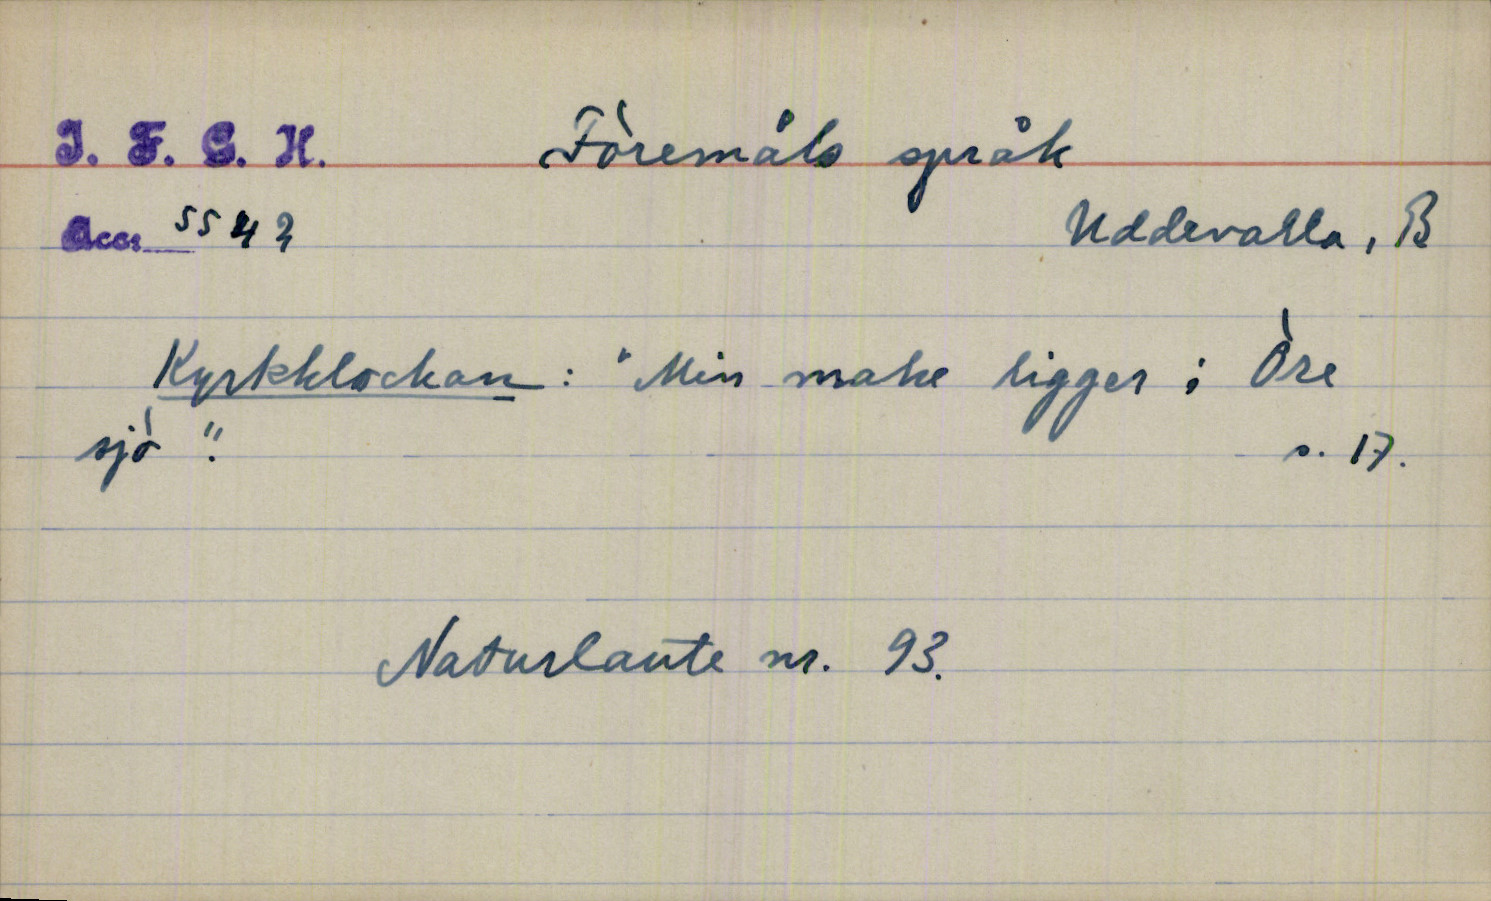 I. F. G. H. Föremåls språk
Accs 5543 Uddevalla, B
Kyrkklockan: "Min make ligger i Öre
sjö". s. 17.
Naturlaute nr. 93.